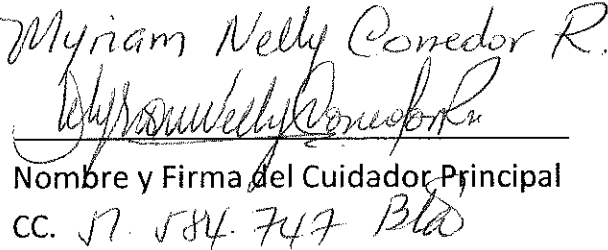 Myriam Nelly Corredor R.
Myriam Nelly Corredor R
Nombre y Firma del Cuidador Principal
CC. 51.584.747 Bta